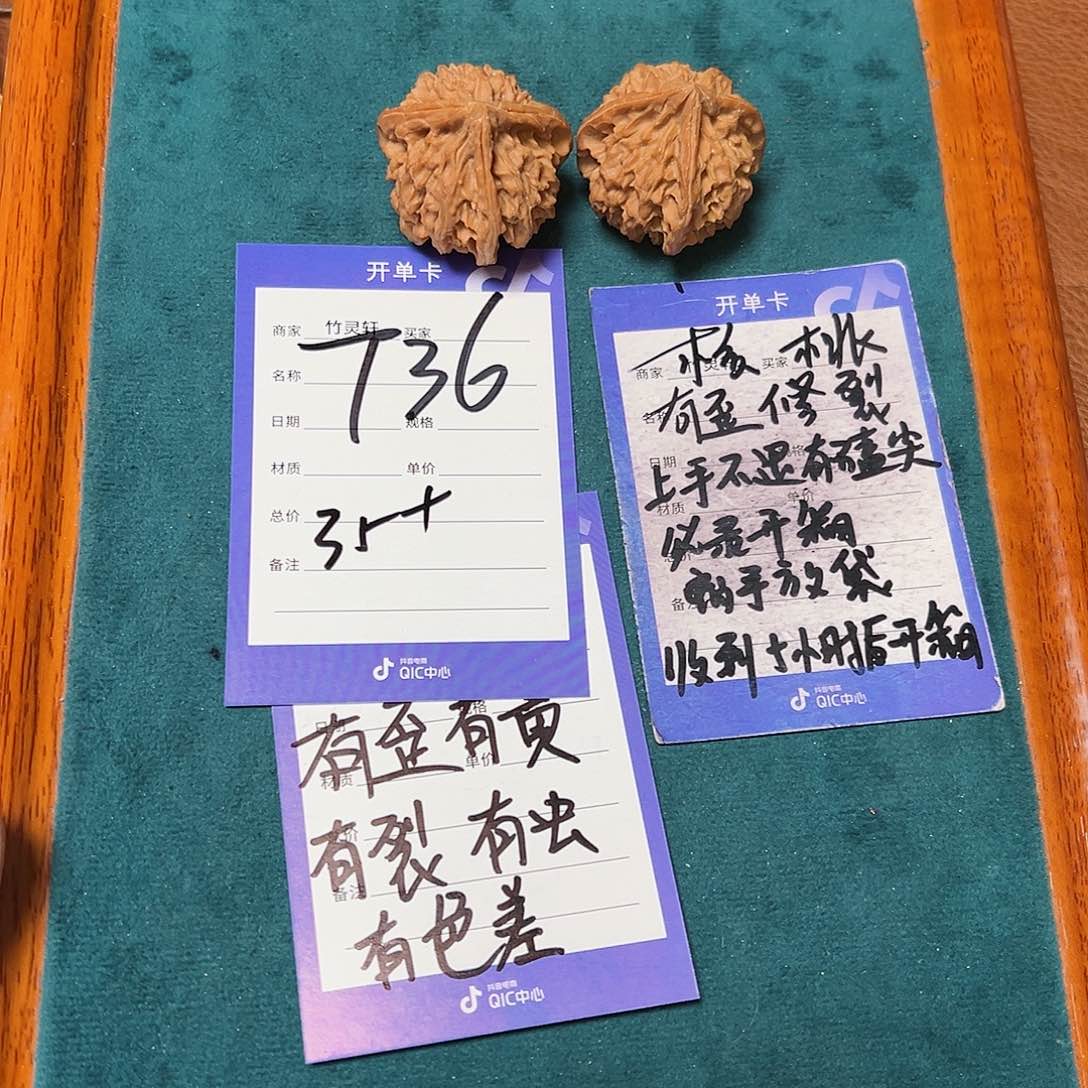 开单卡
商家 竹灵轩 买家
T36
名称
日期 规格
材质 单价
总价
35+
备注
抖音电商
QIC中心
有歪有页
材质 单价
有裂 有虫
备注
有色差
抖音电商
QIC中心
开单卡
核桃
商家 买家
有歪修裂
日期
上手不退有磕尖
材质 单价
必录开箱
两手放袋
收到十小时后开箱
抖音电商
QIC中心